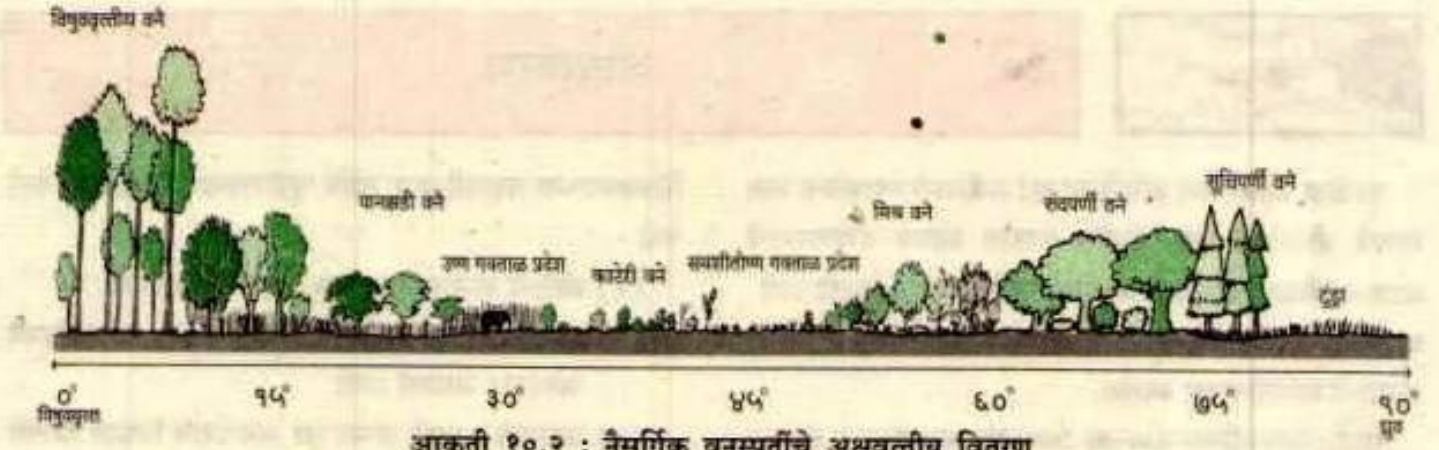 विषुववृत्तीय वने
पानझडी वने
उष्ण गवताळ प्रदेश
काटेरी वने
समशीतोष्ण गवताळ प्रदेश
मिश्र वने
रुंदपर्णी वने
सूचिपर्णी वने
टुंड्रा
०° १५° ३०° ४५° ६०° ७५° ९०°
विषुववृत्त ध्रुव
आकृती १०.२ : नैसर्गिक वनस्पतींचे अक्षवृत्तीय वितरण